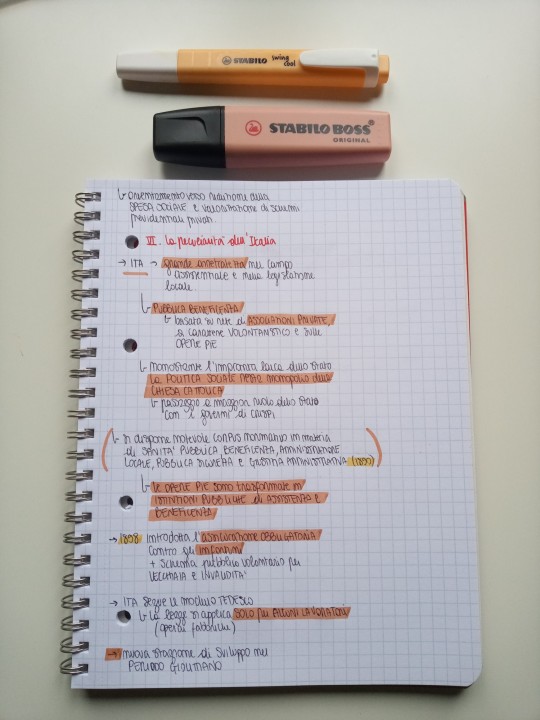 STABILO swing cool
STABILO BOSS®
ORIGINAL
↳ orientamento verso riduzione della
SPESA SOCIALE e valorizzazione di schemi
previdenziali privati.
VI. La peculiarità dell'Italia
→ ITA → grande arretratezza nel campo
assistenziale e nella legislazione
locale.
↳ PUBBLICA BENEFICENZA
↳ basata su rete di ASSOCIAZIONI PRIVATE,
a carattere VOLONTARISTICO e sulle
OPERE PIE
↳ nonostante l'impronta laica dello stato
la POLITICA SOCIALE resta monopolio della
CHIESA CATTOLICA
↳ passaggio a maggior ruolo dello stato
con i governi di CRISPI
↳ si dispone notevole CORPUS normativo in materia
di SANITÀ PUBBLICA, BENEFICENZA, AMMINISTRAZIONE
LOCALE, PUBBLICA SICUREZZA e GIUSTIZIA AMMINISTRATIVA (1890)
↳ le OPERE PIE sono trasformate in
ISTITUZIONI PUBBLICHE di ASSISTENZA E
BENEFICENZA
→ 1898 introdotta l'assicurazione OBBLIGATORIA
contro gli infortuni
+ schema pubblico volontario per
VECCHIAIA e INVALIDITÀ
→ ITA segue il modello TEDESCO
↳ la legge si applica SOLO per ALCUNI LAVORATORI
(operai fabbriche)
→ nuova stagione di sviluppo nel
PERIODO GIOLITTIANO